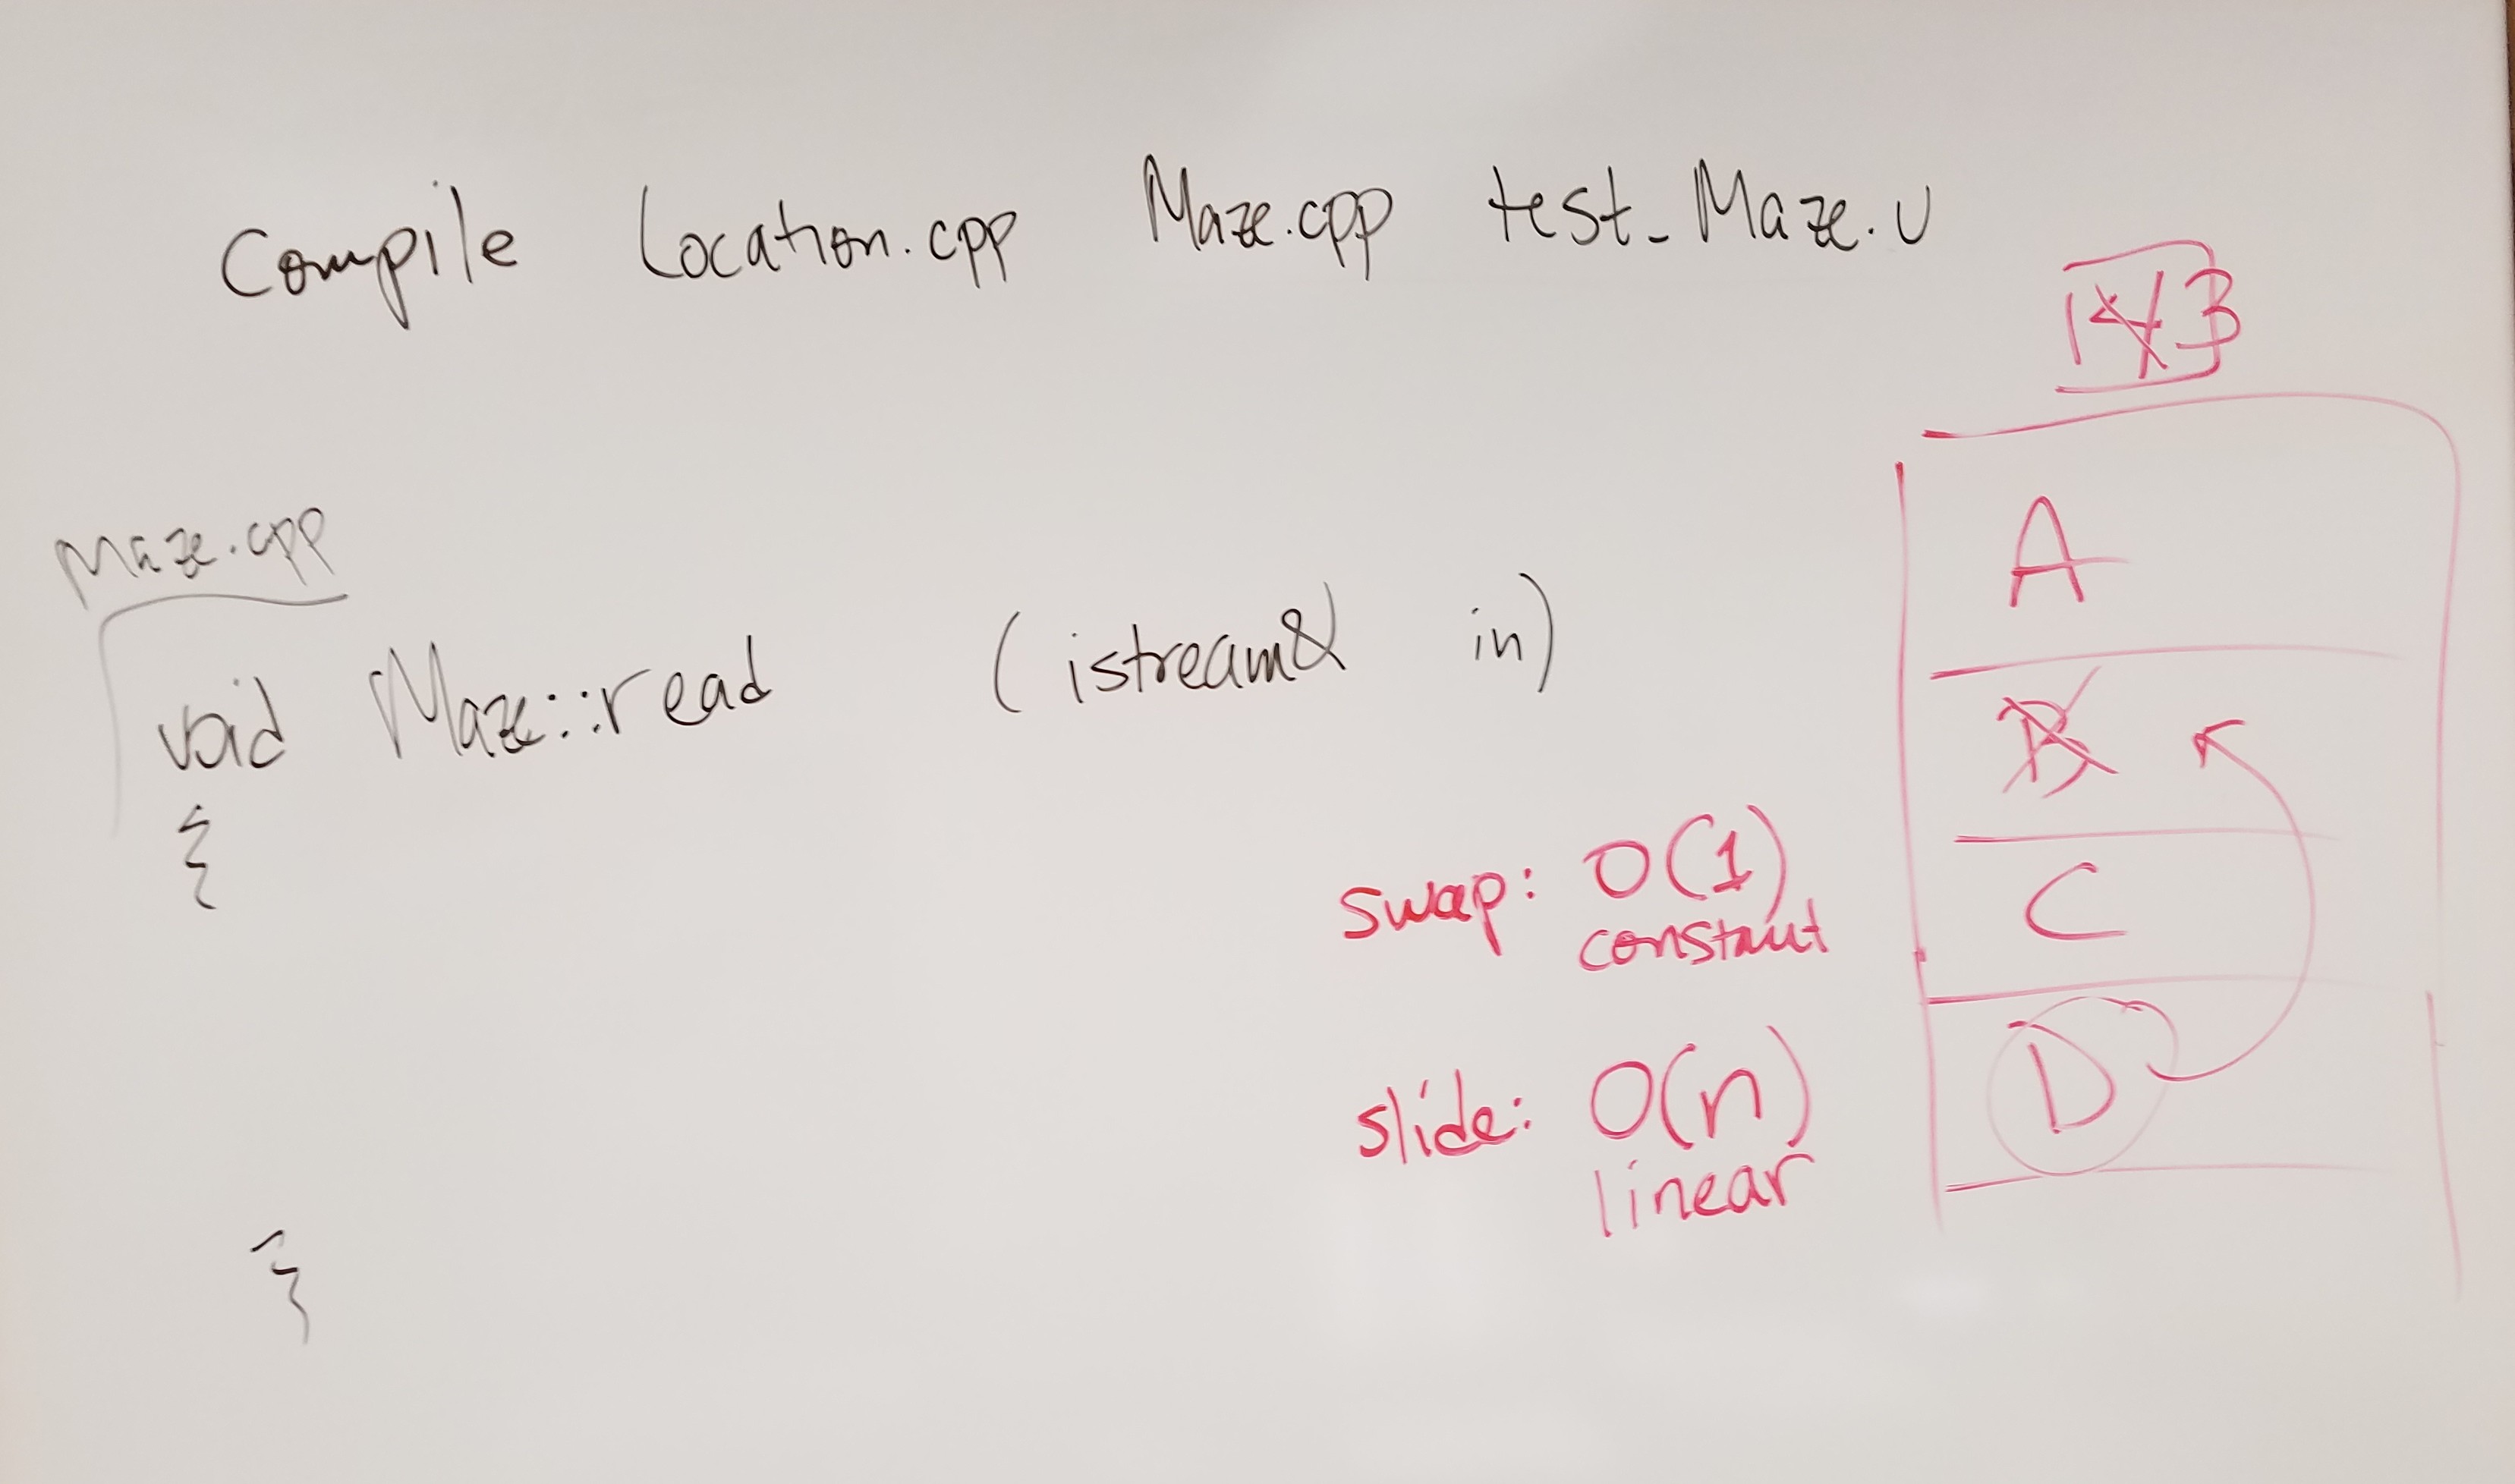 Compile Location.cpp Maze.cpp test_Maze.u
Maze.cpp
void Maze::read (istream& in)
{
}
swap: O(1)
constant
slide: O(n)
linear
4 3
A
B
C
D